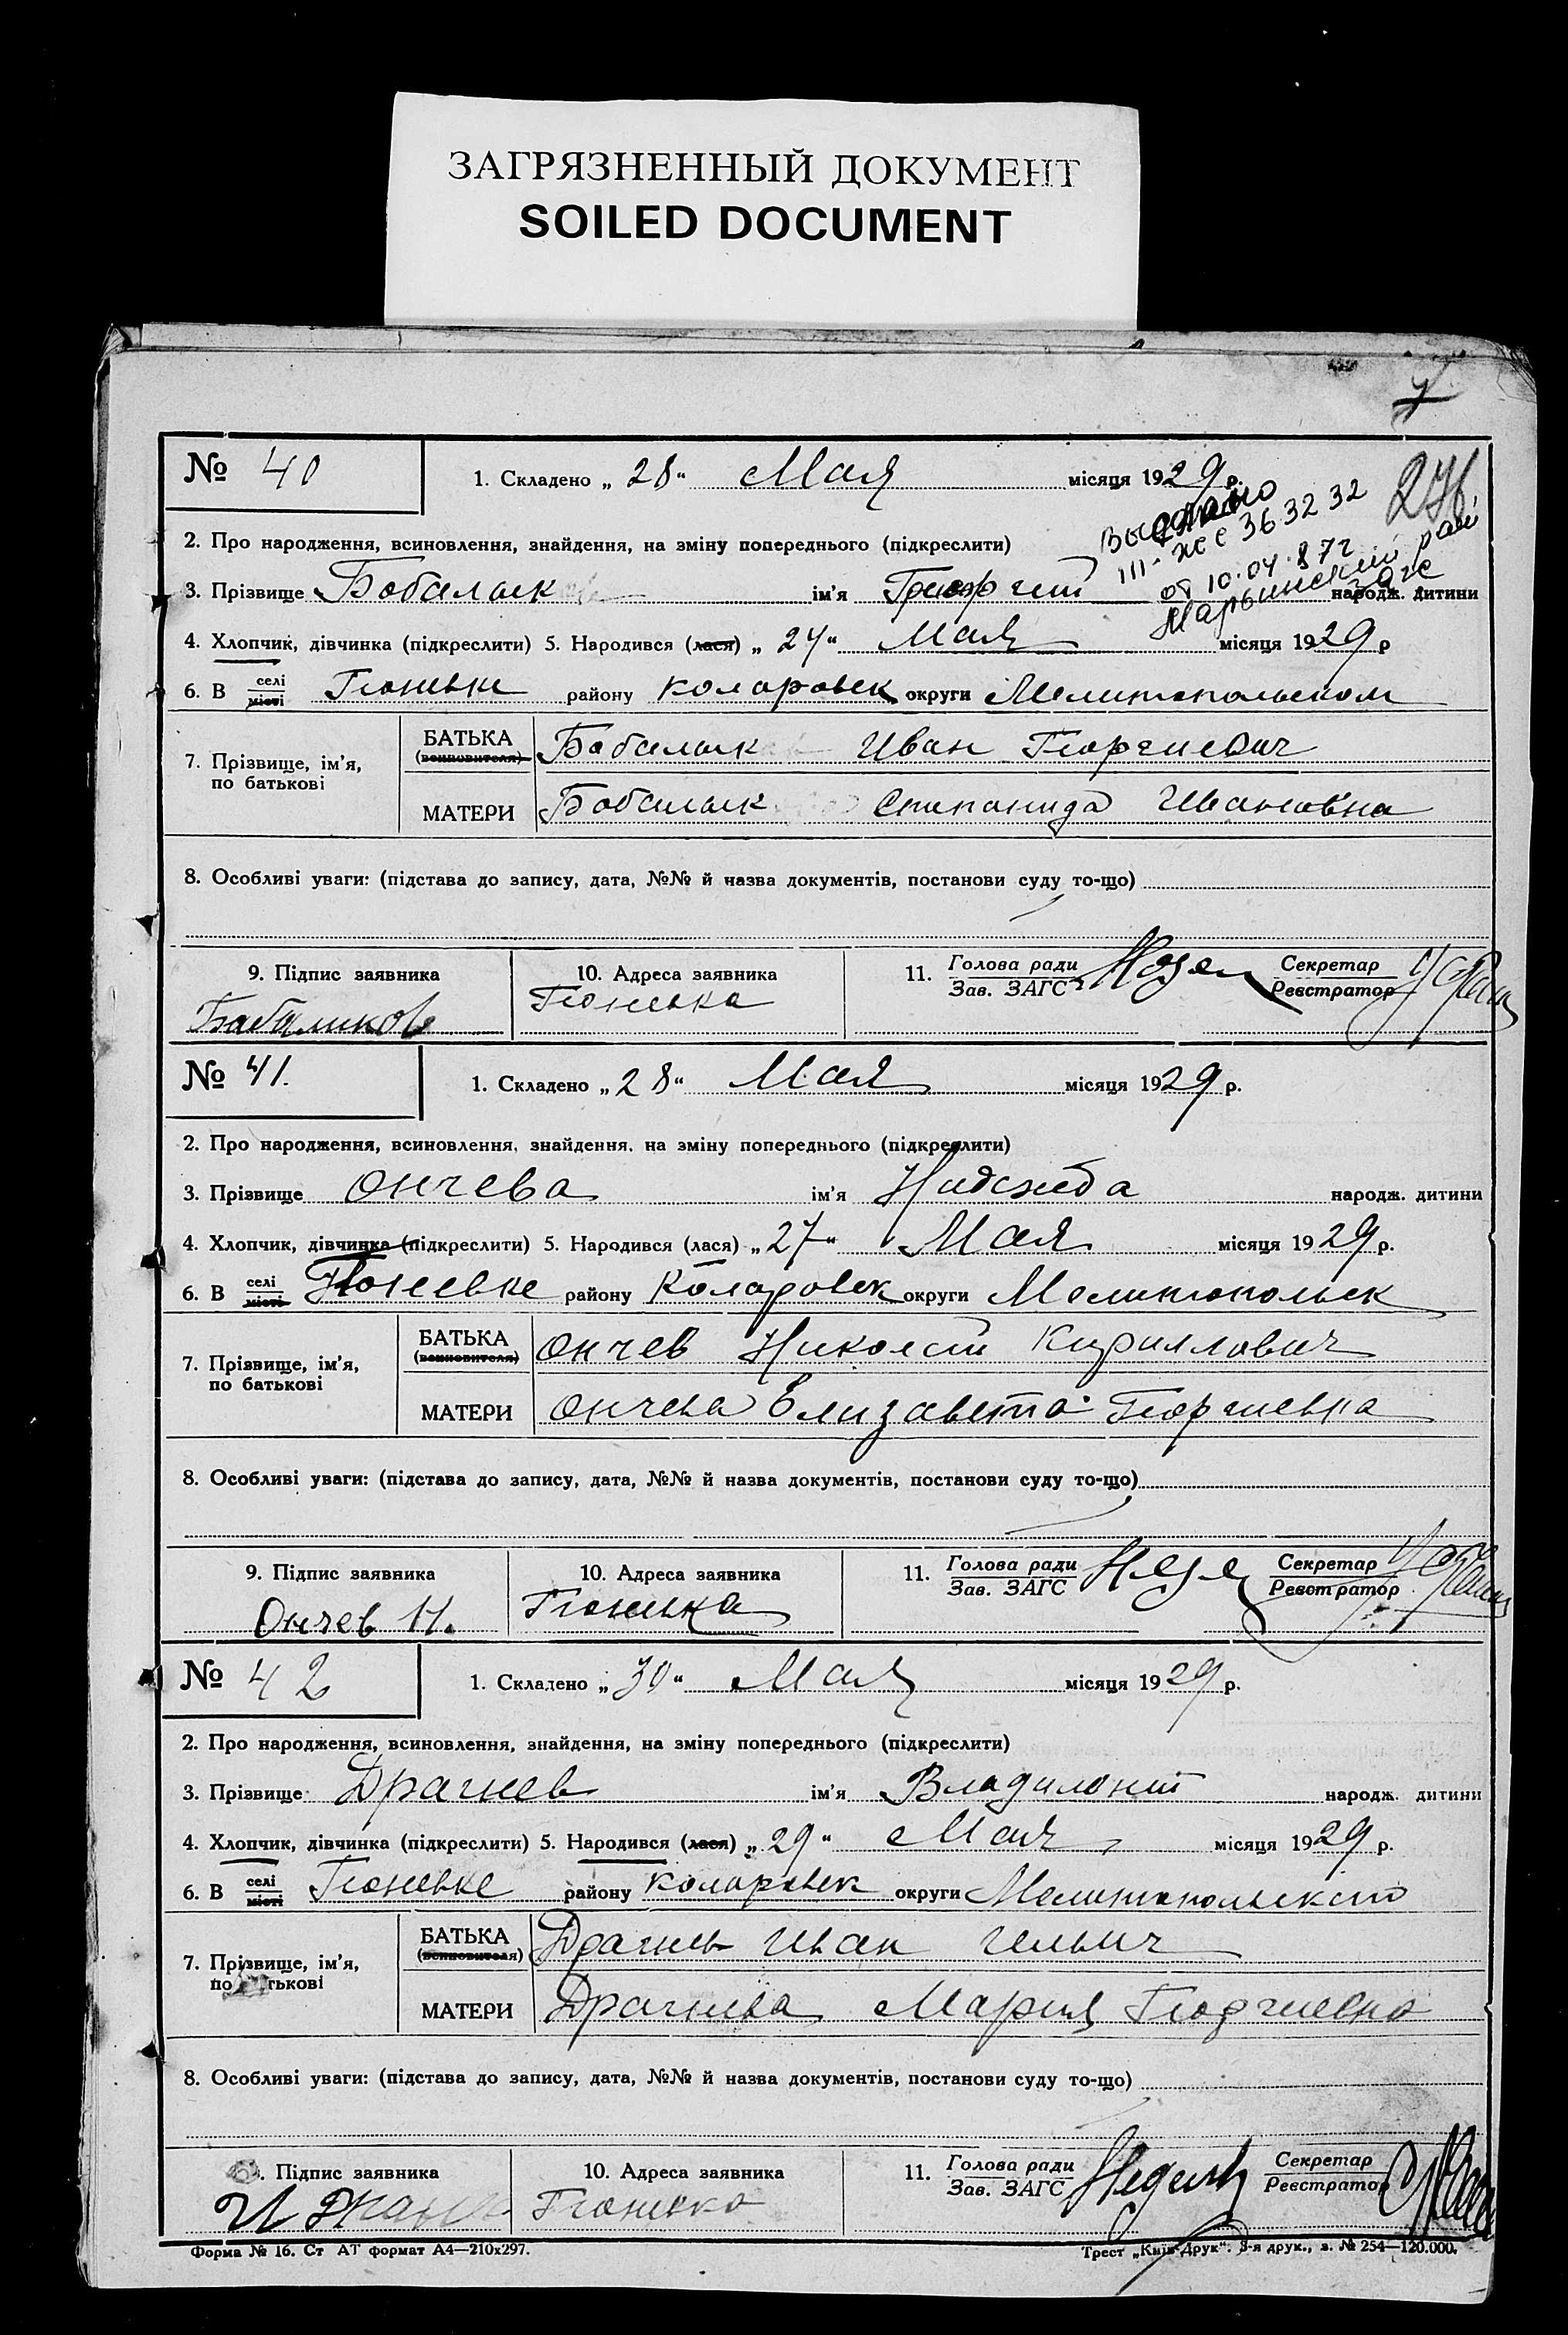 ЗАГРЯЗНЕННЫЙ ДОКУМЕНТ
SOILED DOCUMENT
№ 40
1. Складено „28“ Мая місяця 1929 р.
Выдано
III-жс с 363232
от 10.04.872
Марьинский рай
загс
2. Про народження, всиновлення, знайдення, на зміну попереднього (підкреслити)
3. Прізвище Бабалык ім'я Георгий народж. дитини
4. Хлопчик, дівчинка (підкреслити) 5. Народився (лася) „24“ Мая місяця 1929 р
6. В селі місті Гюневке району Коларовск округи Мелитопольском
7. Прізвище, ім'я, по батькові
БАТЬКА (всиновителя) Бабалык Иван Георгиевич
МАТЕРИ Бабалык Степанида Ивановна
8. Особливі уваги: (підстава до запису, дата, №№ й назва документів, постанови суду то-що)
9. Підпис заявника 10. Адреса заявника 11. Голова ради Зав. ЗАГС Секретар Реєстратор
Бабаликов Гюневка
№ 41.
1. Складено „28“ Мая місяця 1929 р.
2. Про народження, всиновлення, знайдення, на зміну попереднього (підкреслити)
3. Прізвище Ончева ім'я Надежда народж. дитини
4. Хлопчик, дівчинка (підкреслити) 5. Народився (лася) „27“ Мая місяця 1929 р.
6. В селі місті Гюневке району Коларовск округи Мелитопольск
7. Прізвище, ім'я, по батькові
БАТЬКА (всиновителя) Ончев Николай Кириллович
МАТЕРИ Ончева Елизавета Георгиевна
8. Особливі уваги: (підстава до запису, дата, №№ й назва документів, постанови суду то-що)
9. Підпис заявника 10. Адреса заявника 11. Голова ради Зав. ЗАГС Секретар Реєстратор
Ончев Н. Гюневка
№ 42
1. Складено „30“ Мая місяця 1929 р.
2. Про народження, всиновлення, знайдення, на зміну попереднього (підкреслити)
3. Прізвище Драгнев ім'я народж. дитини
4. Хлопчик, дівчинка (підкреслити) 5. Народився (лася) „29“ Мая місяця 1929 р.
6. В селі місті Гюневке району Коларовск округи Мелитопольской
7. Прізвище, ім'я, по батькові
БАТЬКА (всиновителя) Драгнев Иван Ильич
МАТЕРИ Драгнева Мария Георгиевна
8. Особливі уваги: (підстава до запису, дата, №№ й назва документів, постанови суду то-що)
9. Підпис заявника 10. Адреса заявника 11. Голова ради Зав. ЗАГС Секретар Реєстратор
Гюневка
Форма № 16. Ст АТ формат А4—210х297. Трест „Київ-Друк“. 3-я друк., з. № 254—120.000.